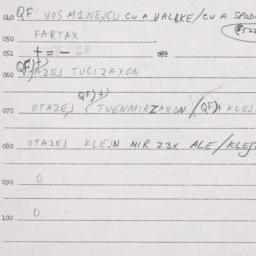 040 QF VOS MINEJCU CU A HALBKE/CU A SPOD
050 FARTAX
051 + = -
060 QF)+) OTAZEJ TUCIZAXON
070 OTAZEJ QF)+) TUENMIRZAXON /QF)+ KLEJ
080 OTAZEJ KLEJN MIR Z3X ALE/KLEJ
090 0
100 0